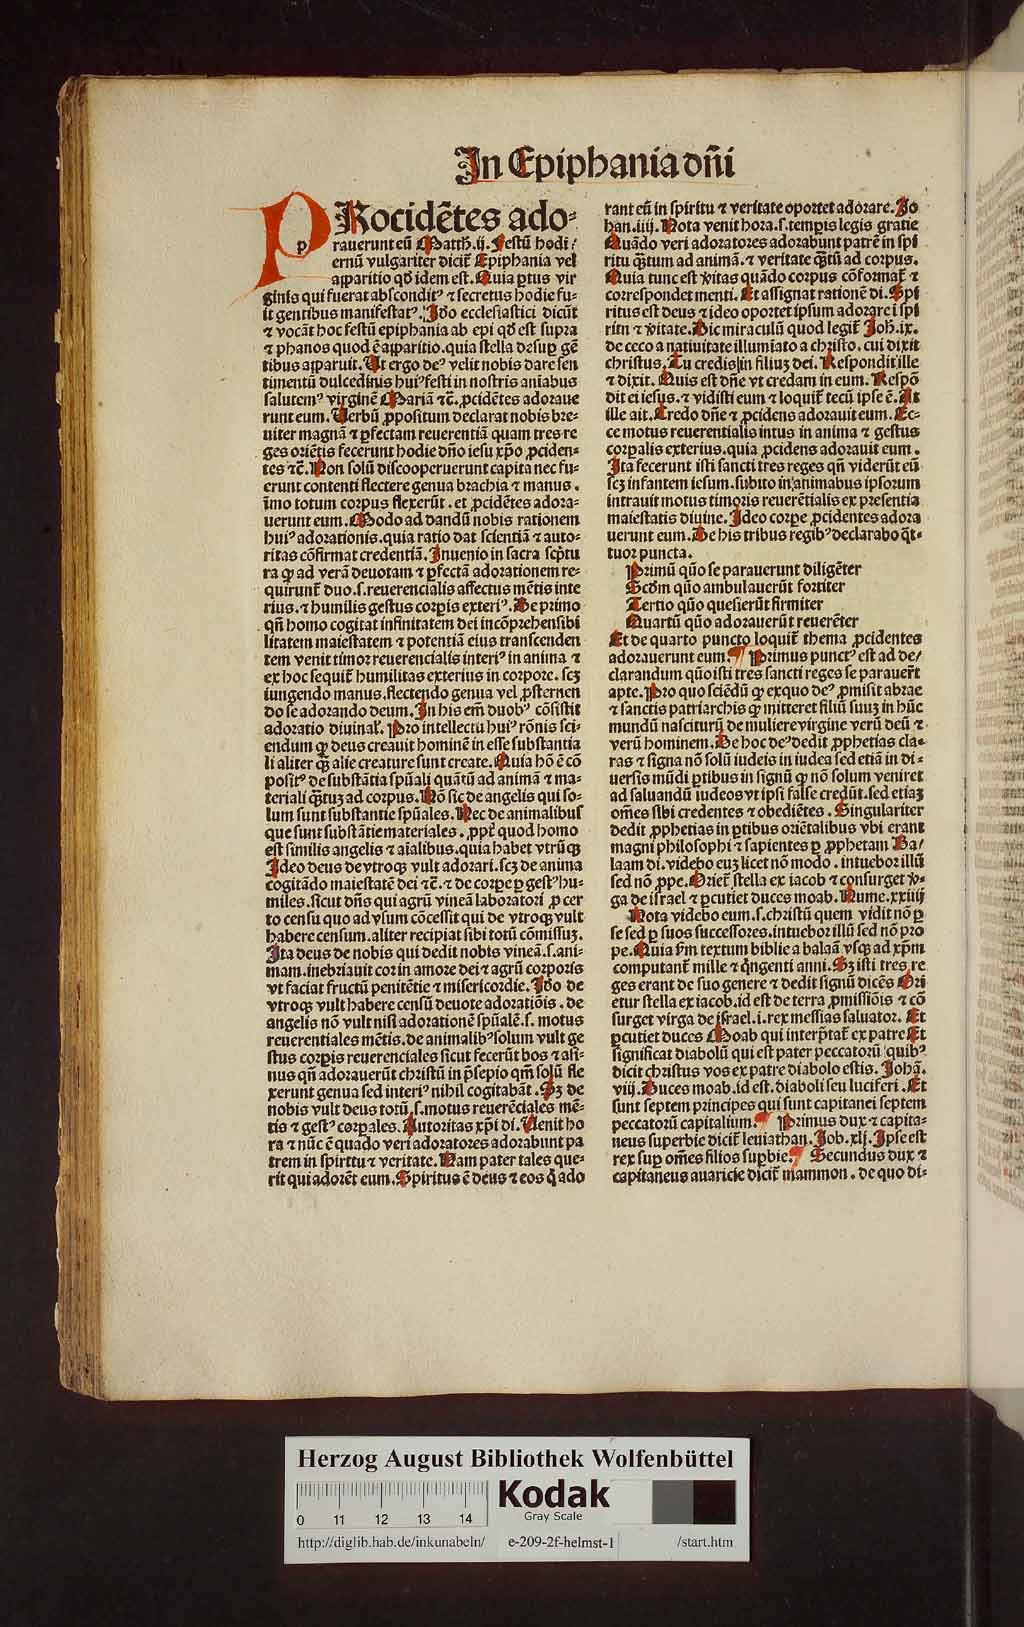 In Epiphania dñi
PRocidẽtes ado⸗
rauerunt eũ Matth̃.ij. Festũ hodi⸗
ernũ vulgariter dicit̃ Epiphania vel
apparitio qđ idem est. Quia ꝑtus vir
ginis qui fuerat abscondit⁹ ⁊ secretus hodie fu⸗
it gentibus manifestat⁹. Iđo ecclesiastici dicũt
⁊ vocãt hoc festũ epiphania ab epi qđ est supra
⁊ phanos quod ẽ apparitio. quia stella desuꝑ gẽ
tibus apparuit. Ut ergo de⁹ velit nobis dare sen
timentũ dulcedinis hui⁹ festi in nostris aniabus
salutem⁹ virginẽ Mariã ⁊c̃. ꝓcidẽtes adoraue
runt eum. Uerbũ ꝓpositum declarat nobis bre⸗
uiter magnã ⁊ ꝑfectam reuerentiã quam tres re
ges oriẽtis fecerunt hodie dño iesu xp̃o ꝓciden⸗
tes ⁊c̃. Non solũ discooperuerunt capita nec fu⸗
erunt contenti flectere genua brachia ⁊ manus.
ĩmo totum corpus flexerũt. et ꝓcidẽtes adora⸗
uerunt eum. Modo ad dandũ nobis rationem
hui⁹ adorationis. quia ratio dat scientiã ⁊ auto⸗
ritas cõfirmat credentiã. Inuenio in sacra scp̃tu
ra ꝙ ad verã deuotam ⁊ ꝑfectã adorationem re⸗
quirunt̃ duo. s. reuerencialis affectus mẽtis inte
rius. ⁊ humilis gestus corꝑis exteri⁹. De primo
qñ homo cogitat infinitatem dei incõprehensibi
litatem maiestatem ⁊ potentiã eius transcenden
tem venit timor reuerencialis interi⁹ in anima ⁊
ex hoc sequit̃ humilitas exterius in corpore. scꝫ
iungendo manus. flectendo genua vel ꝓsternen
do se adorando deum. In his em̃ duob⁹ cõsistit
adoratio diuinal̃. Pro intellectu hui⁹ rõnis sci⸗
endum ꝙ deus creauit hominẽ in esse substantia
li aliter qꝫ̃ alie creature sunt create. Quia hõ ẽ cõ
posit⁹ de substãtia spũali quãtũ ad animã ⁊ ma⸗
teriali qꝫ̃tuꝫ ad corpus. Nõ sic de angelis qui so⸗
lum sunt substantie spũales. Nec de animalibus
que sunt substãtie materiales. ꝓpt̃ quod homo
est similis angelis ⁊ aĩalibus. quia habet vtrũqꝫ
Ideo deus de vtroqꝫ vult adorari. scꝫ de anima
cogitãdo maiestatẽ dei ⁊c̃. ⁊ de corꝑe ꝑ gest⁹ hu⸗
miles. sicut dñs qui agrũ vineã laboratori ꝓ cer
to censu quo ad vsum cõcessit qui de vtroqꝫ vult
habere censum. aliter recipiat sibi totũ cõmissuꝫ.
Ita deus de nobis qui dedit nobis vineã. s. ani⸗
mam. inebriauit cor in amore dei ⁊ agrũ corporis
vt faciat fructũ penitẽtie ⁊ misericordie. Iđo de
vtroqꝫ vult habere censũ deuote adoratiõis. de
angelis nõ vult nisi adorationẽ spũalẽ. s. motus
reuerentiales mẽtis. de animalib⁹ solum vult ge
stus corꝑis reuerenciales sicut fecerũt bos ⁊ asi⸗
nus qñ adorauerũt christũ in p̃sepio qm̃ solũ fle
xerunt genua sed interi⁹ nihil cogitabãt. Sꝫ de
nobis vult deus totũ. s. motus reuerẽciales mẽ⸗
tis ⁊ gest⁹ corꝑales. Autoritas xp̃i di. Uenit ho
ra ⁊ nũc ẽ quado veri adoratores adorabunt pa
trem in spiritu ⁊ veritate. Nam pater tales que⸗
rit qui adorẽt eum. Spiritus ẽ deus ⁊ eos q̃ ado
rant eũ in spiritu ⁊ veritate oportet adorare. Jo
han.iiij. Nota venit hora. s. temꝑis legis gratie
Quãdo veri adoratores adorabunt patrẽ in spi
ritu qꝫ̃tum ad animã. ⁊ veritate qꝫ̃tũ ad corpus.
Quia tunc est v̾itas quãdo corpus cõformat̃ ⁊
correspondet menti. Et assignat rationẽ di. Spi
ritus est deus ⁊ ideo oportet ipsum adorare ĩ spi
ritu ⁊ v̾itate. Hic miraculũ quod legit̃ Joh̃.ix.
de ceco a natiuitate illumĩato a christo. cui dixit
christus. Tu credis in filiuꝫ dei. Respondit ille
⁊ dixit. Quis est dñe vt credam in eum. Respõ
dit ei iesus. ⁊ vidisti eum ⁊ loquit̃ tecũ ipse ẽ. At
ille ait. Credo dñe ⁊ ꝓcidens adorauit eum. Ec⸗
ce motus reuerentialis intus in anima ⁊ gestus
corꝑalis exterius. quia ꝓcidens adorauit eum.
Ita fecerunt isti sancti tres reges qñ viderũt eũ
scꝫ infantem iesum. subito in animabus ipsorum
intrauit motus timoris reuerẽtialis ex presentia
maiestatis diuine. Ideo corꝑe ꝓcidentes adora
uerunt eum. De his tribus regib⁹ declarabo q̃t⸗
tuor puncta.
Primũ qũo se parauerunt diligẽter
Scđm qũo ambulauerũt fortiter
Tertio qũo quesierũt firmiter
Quartũ qũo adorauerũt reuerẽter
Et de quarto puncto loquit̃ thema ꝓcidentes
adorauerunt eum. ¶ Primus punct⁹ est ad de⸗
clarandum qũo isti tres sancti reges se parauer̃t
apte. Pro quo sciẽdũ ꝙ exquo de⁹ ꝓmisit abrae
⁊ sanctis patriarchis ꝙ mitteret filiũ suuꝫ in hũc
mundũ nasciturũ de muliere virgine verũ deũ ⁊
verũ hominem. De hoc de⁹ dedit ꝓphetias cla⸗
ras ⁊ signa nõ solũ iudeis in iudea sed etiã in di⸗
uersis mũdi ꝑtibus in signũ ꝙ nõ solum veniret
ad saluandũ iudeos vt ipsi false credũt. sed etiaꝫ
om̃es sibi credentes ⁊ obediẽtes. Singulariter
dedit ꝓphetias in ꝑtibus oriẽtalibus vbi erant
magni philosophi ⁊ sapientes ꝑ ꝓphetam Ba⸗
laam di. videbo euꝫ licet nõ modo. intuebor illũ
sed nõ ꝓpe. Oriet̃ stella ex iacob ⁊ consurget v̾⸗
ga de israel ⁊ ꝑcutiet duces moab. Nume.xxiiij
Nota videbo eum. s. christũ quem vidit nõ ꝑ
se sed ꝑ suos successores. intuebor illũ sed nõ pro
pe. Quia ẜm textum biblie a balaã vsqꝫ ad xp̃m
computant̃ mille ⁊ q̃ngenti anni. Sꝫ isti tres re
ges erant de suo genere ⁊ dedit signũ dicẽs Ori
etur stella ex iacob. id est de terra ꝓmissiõis ⁊ cõ
surget virga de israel. i. rex messias saluator. Et
ꝑcutiet duces Moab qui interp̃tat̃ ex patre Et
significat diabolũ qui est pater peccatorũ quib⁹
dicit christus vos ex patre diabolo estis. Johã.
viij. Duces moab. id est. diaboli seu luciferi. Et
sunt septem principes qui sunt capitanei septem
peccatorũ capitalium. ¶ Primus dux ⁊ capita⸗
neus superbie dicit̃ leuiathan. Job.xlj. Ipse est
rex suꝑ om̃es filios suꝑbie. ¶ Secundus dux ⁊
capitaneus auaricie dicit̃ mammon. de quo di⸗
Herzog August Bibliothek Wolfenbüttel
0 11 12 13 14
Kodak
Gray Scale
http://diglib.hab.de/inkunabeln/ e-209-2f-helmst-1 /start.htm